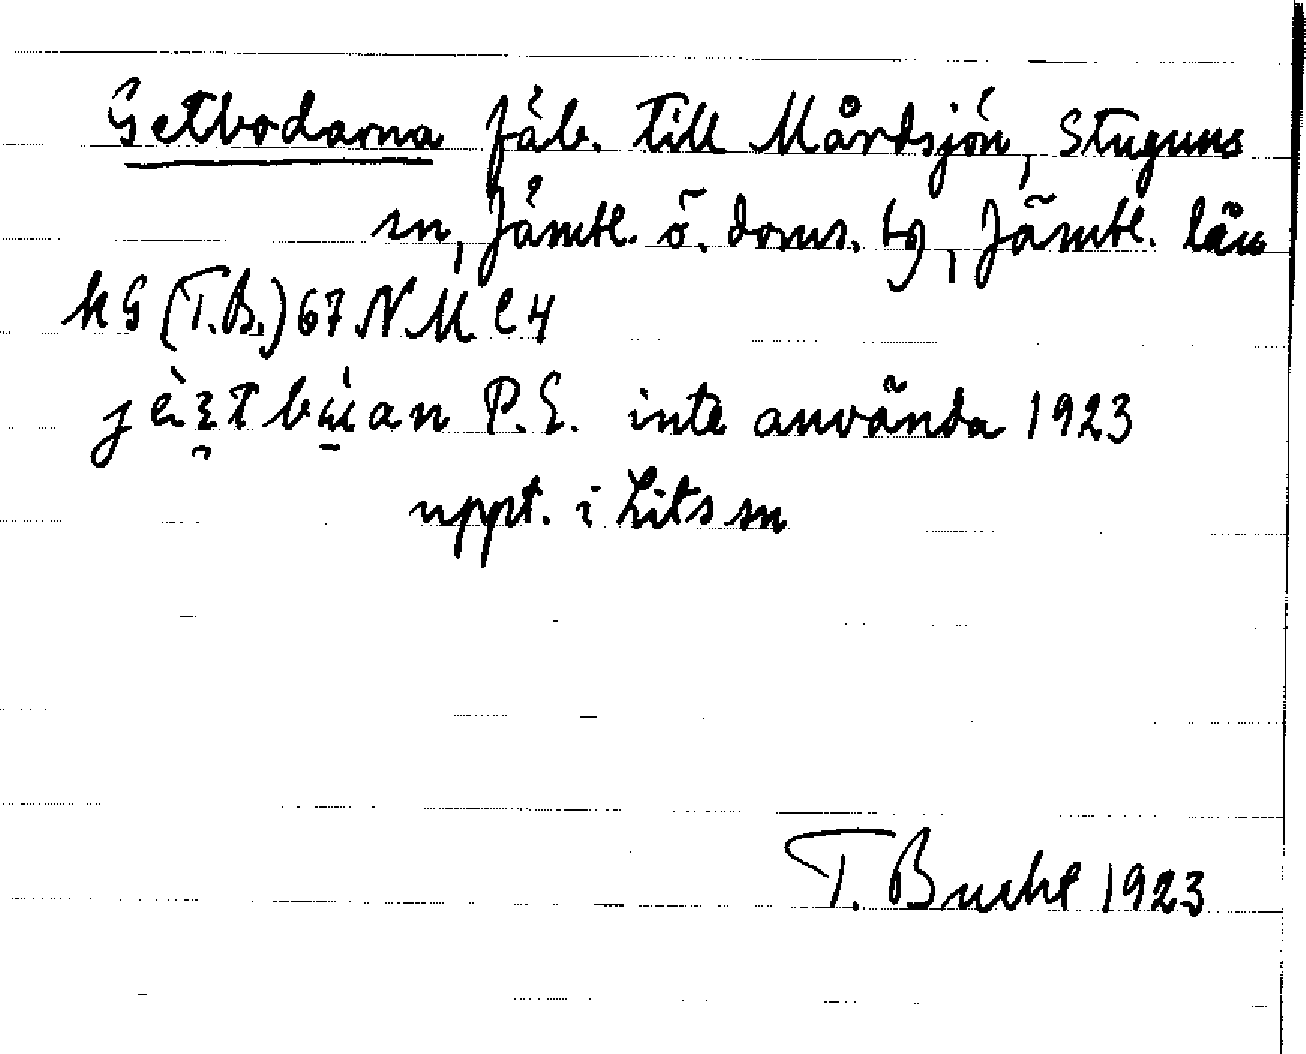 Getbodarna fäb. till Mårdsjön, Stuguns
sn, Jämtl. ö. doms. tg, Jämtl. län
kG (T.B.) 67 NM C4
P.E. inte använda 1923
uppt. i Lits sn
T. Bucht 1923